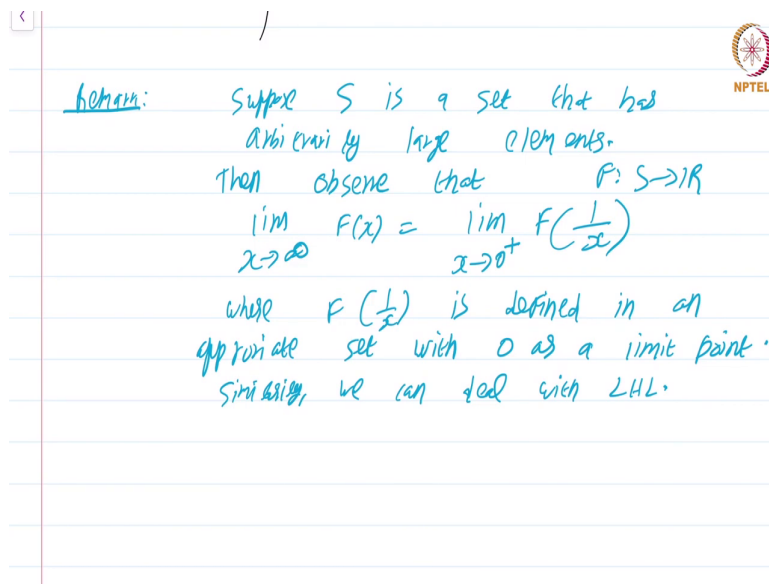 NPTEL
Remark: Suppose S is a set that has
arbitrarily large elements.
Then observe that F: S→ℝ
lim F(x) = lim F(1/x)
x→∞ x→0⁺
where F(1/x) is defined in an
approriate set with 0 as a limit point.
Similarly, we can deal with LHL.